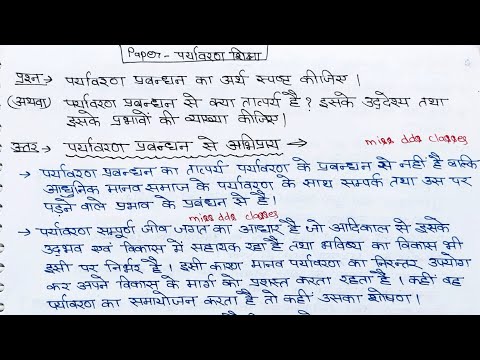 Paper - पर्यावरण शिक्षा
प्रश्न → पर्यावरण प्रबन्धन का अर्थ स्पष्ट कीजिए।
(अथवा) पर्यावरण प्रबन्धन से क्या तात्पर्य है? इसके उद्देश्य तथा
इसके प्रभावों की व्याख्या कीजिए।
उत्तर → पर्यावरण प्रबन्धन से अभिप्राय →
miss dda classes
→ पर्यावरण प्रबन्धन का तात्पर्य पर्यावरण के प्रबन्धन से नही है बल्कि
आधुनिक मानव समाज के पर्यावरण के साथ सम्पर्क तथा उस पर
पड़ने वाले प्रभाव के प्रबंधन से है।
miss dda classes
→ पर्यावरण सम्पूर्ण जीव जगत का आधार है जो आदिकाल से इसके
उद्भव एवं विकास में सहायक रहा है तथा भविष्य का विकास भी
इसी पर निर्भर है। इसी कारण मानव पर्यावरण का निरन्तर उपयोग
कर अपने विकास के मार्ग को प्रशस्त करता रहता है। कहीं वह
पर्यावरण का समायोजन करता है तो कहीं उसका शोषण।